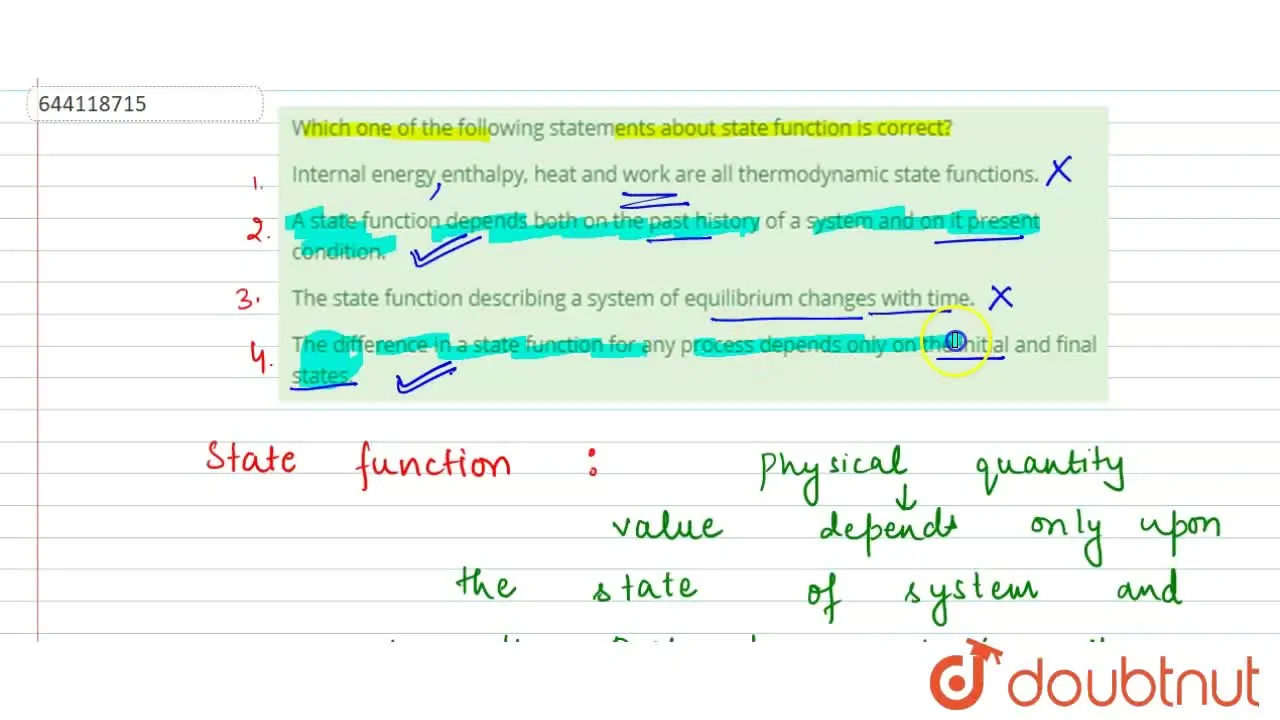 644118715
Which one of the following statements about state function is correct?
1. Internal energy, enthalpy, heat and work are all thermodynamic state functions. X
2. A state function depends both on the past history of a system and on it present
condition.
3. The state function describing a system of equilibrium changes with time. X
4. The difference in a state function for any process depends only on the initial and final
states.
State function : Physical quantity
value depends only upon
the state of system and
doubtnut